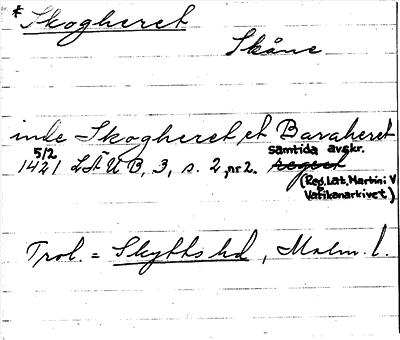 *Skogheret
Skåne
inde Skogheret et Baraheret
5/2 samtida avskr.
1421 LÄUB, 3, s. 2, nr 2. regest
(Reg. Lat. Martini V
Vatikanarkivet)
Trol. = Skytts hd, Malm. l.